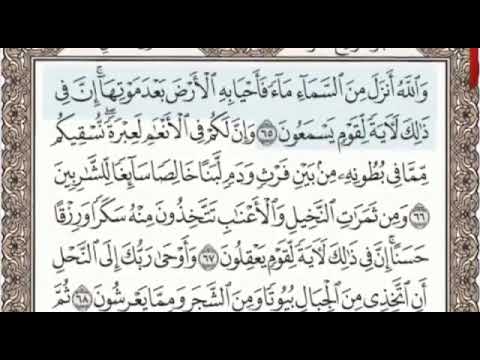 وَٱللَّهُ أَنزَلَ مِنَ ٱلسَّمَآءِ مَآءً فَأَحْيَا بِهِ ٱلْأَرْضَ بَعْدَ مَوْتِهَآ ۚ إِنَّ فِى
ذَٰلِكَ لَءَايَةً لِّقَوْمٍ يَسْمَعُونَ ٦٥ وَإِنَّ لَكُمْ فِى ٱلْأَنْعَٰمِ لَعِبْرَةً ۖ نُّسْقِيكُم
مِّمَّا فِى بُطُونِهِۦ مِنۢ بَيْنِ فَرْثٍ وَدَمٍ لَّبَنًا خَالِصًا سَآئِغًا لِّلشَّٰرِبِينَ
٦٦ وَمِن ثَمَرَٰتِ ٱلنَّخِيلِ وَٱلْأَعْنَٰبِ تَتَّخِذُونَ مِنْهُ سَكَرًا وَرِزْقًا
حَسَنًا ۗ إِنَّ فِى ذَٰلِكَ لَءَايَةً لِّقَوْمٍ يَعْقِلُونَ ٦٧ وَأَوْحَىٰ رَبُّكَ إِلَى ٱلنَّحْلِ
أَنِ ٱتَّخِذِى مِنَ ٱلْجِبَالِ بُيُوتًا وَمِنَ ٱلشَّجَرِ وَمِمَّا يَعْرِشُونَ ٦٨ ثُمَّ